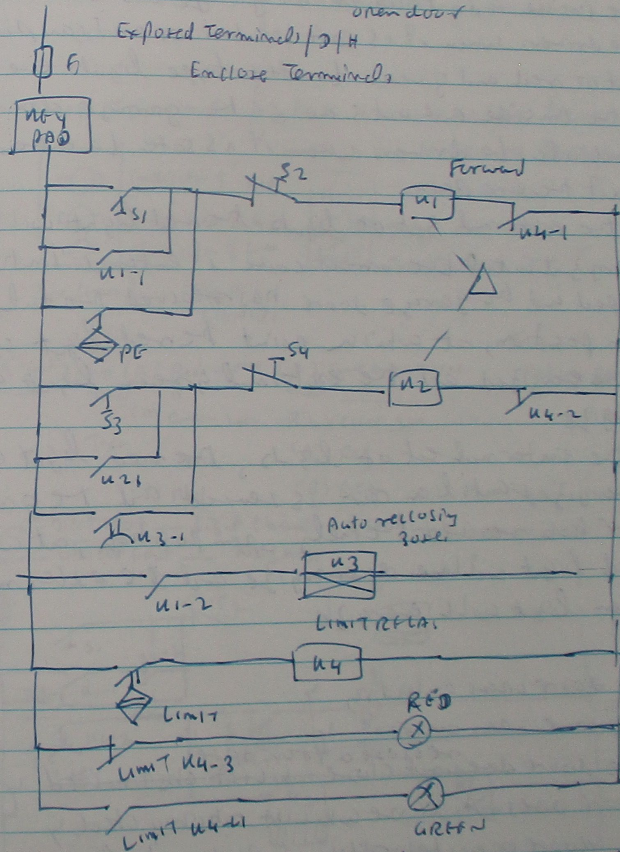 open door
Exposed Terminals/D/H
Enclose Terminals
F1
KEY
PAD
S2
Forward
S1
K1
K4-1
K1-1
PE
S4
K2
S3
K4-2
K21
K3-1
Auto reclosing
K3
K1-2
LIMIT RELAI
K4
LIMIT
RED
LIMIT K4-3
LIMIT K4-4
GREEN